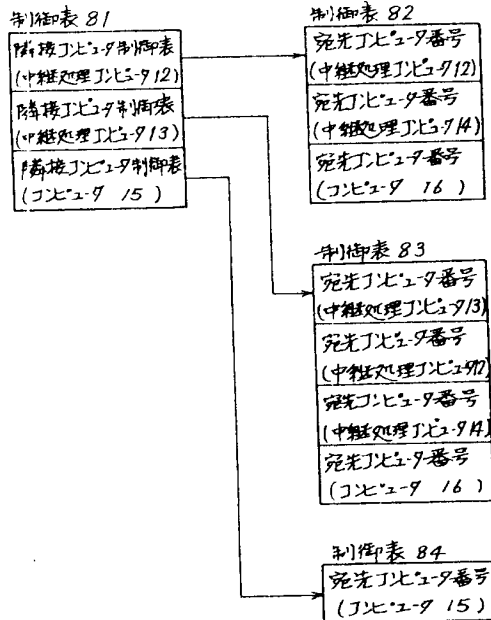 制御表 81
隣接コンピュータ制御表
(中継処理コンピュータ12)
隣接コンピュータ制御表
(中継処理コンピュータ13)
隣接コンピュータ制御表
(コンピュータ 15 )
制御表 82
宛先コンピュータ番号
(中継処理コンピュータ12)
宛先コンピュータ番号
(中継処理コンピュータ14)
宛先コンピュータ番号
(コンピュータ 16 )
制御表 83
宛先コンピュータ番号
(中継処理コンピュータ13)
宛先コンピュータ番号
(中継処理コンピュータ12)
宛先コンピュータ番号
(中継処理コンピュータ14)
宛先コンピュータ番号
(コンピュータ 16 )
制御表 84
宛先コンピュータ番号
(コンピュータ 15 )